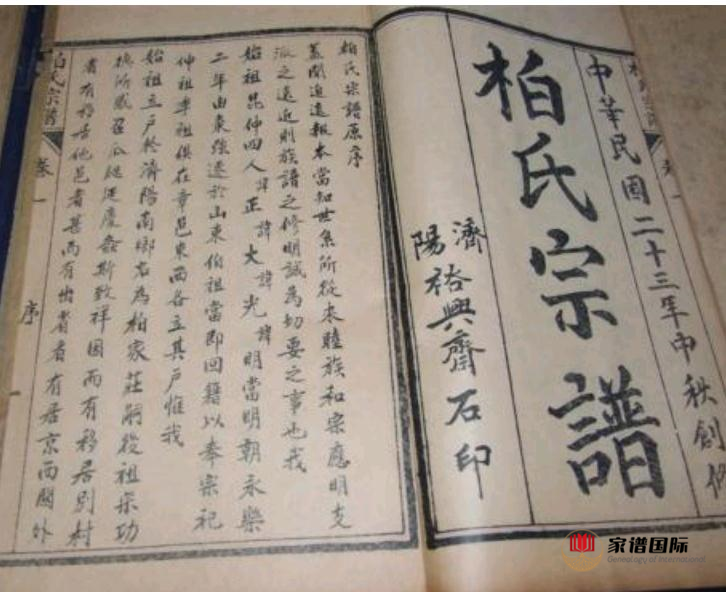 中華民國二十三年中秋創
柏氏宗譜
濟陽裕興齋石印
柏氏宗譜原序
蓋聞追遠報本當知世系所從來睦族和宗應明支
派之遠近則族譜之修明誠為切要之事也我
始祖昆仲四人諱正諱大諱光諱明當明朝永樂
二年由東強遷於山東伯祖當即回籍以奉宗祀
仲祖季祖俱在章邑東西各立其戶惟我
始祖立戶於濟陽南鄉名為柏家莊嗣後祖宗功
德所感召瓜瓞延慶螽斯致祥因而有移居別村
者有移居他邑者甚而有出者有居京西關外
柏氏宗譜 卷一 序 一
家谱国际
Genealogy of International